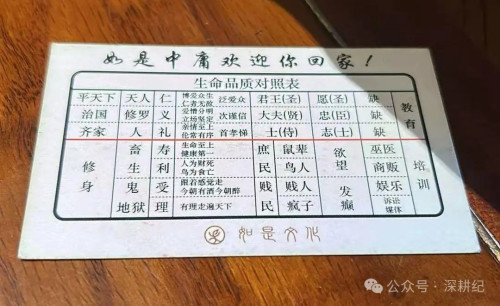 如是中庸欢迎你回家!
生命品质对照表
平天下 天人 仁 博爱众生 仁者无敌 泛爱众 君王(圣) 愿(圣) 缺 教
治国 修罗 义 爱憎分明 立场坚定 次谨信 大夫(贤) 忠(臣) 缺 育
齐家 人 礼 亲情至上 伦常有序 首孝悌 士(侍) 志(士) 缺
修 畜 寿 生命至上 健康第一 庶 鼠辈 欲 巫医 培
生 利 人为财死 鸟为食亡 民 鸟人 望 商贩 训
身 鬼 受 跟着感觉走 今朝有酒今朝醉 贱 贱人 发 娱乐
地狱 理 有理走遍天下 民 疯子 癫 诉讼 媒体
如是文化
公众号·深耕纪